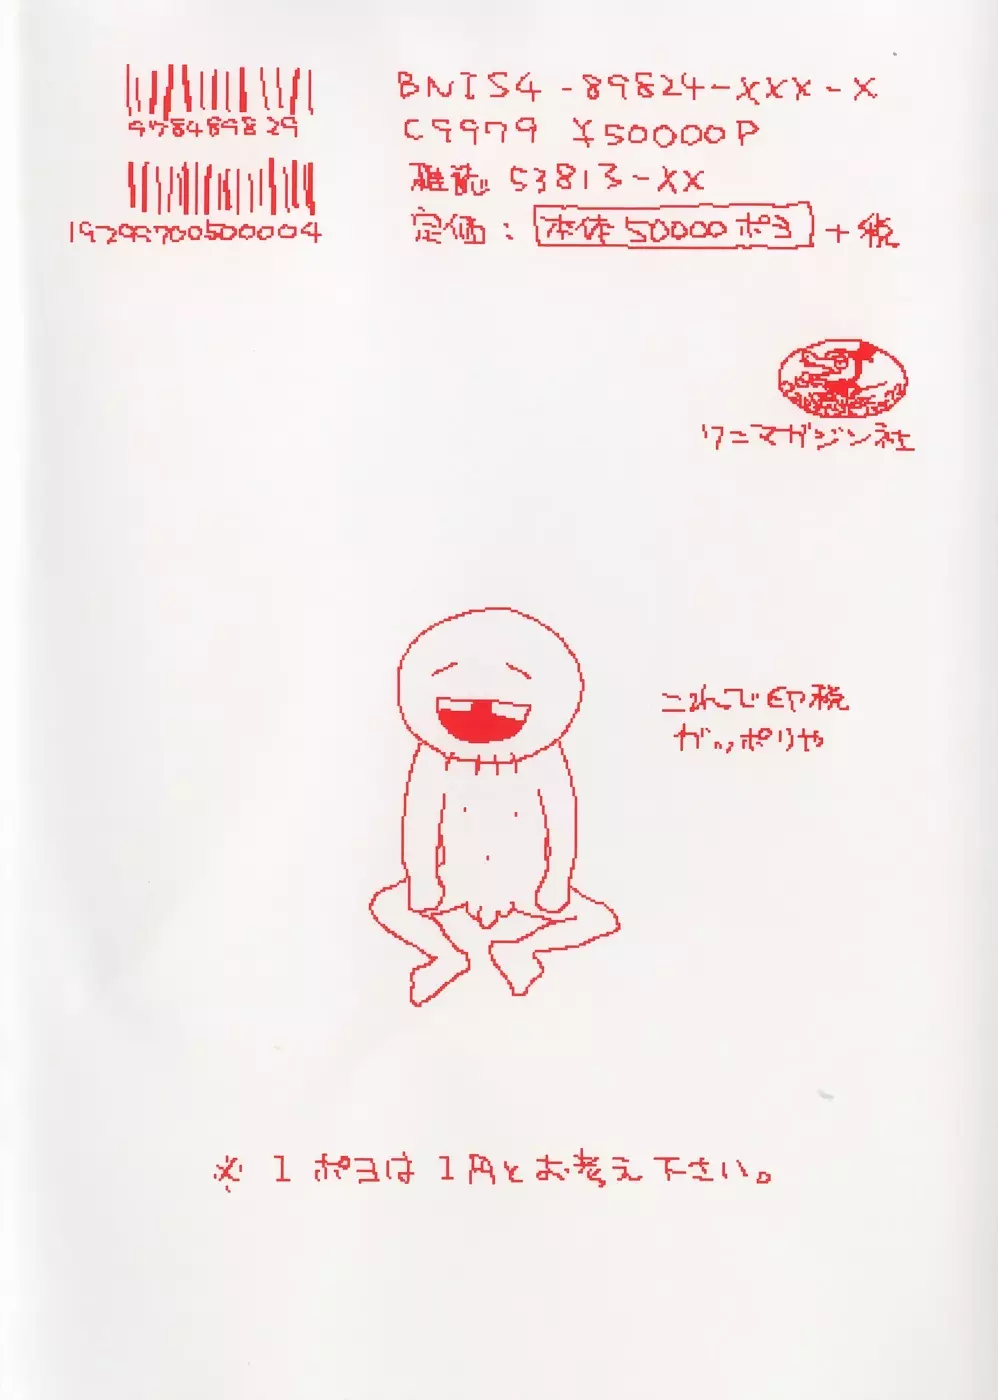 9784898829
BNIS4-89824-XXX-X
C9979 ¥50000P
雑誌 53813-XX
1929979005000004
定価：本体50000ポヨ＋税
ワニマガジン社
これで印税
ガッポリや
※1ポヨは1円とお考え下さい。